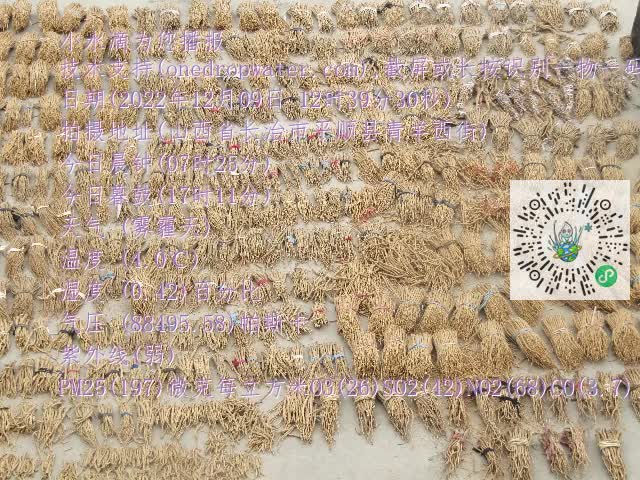 小水滴为您播报
技术支持(onedropwater.com)截屏或长按识别一物一码
日期(2022年12月09日 12时39分30秒)
拍摄地址(山西省长治市平顺县青羊西街)
今日晨钟(07时25分)
今日暮鼓(17时11分)
天气 (雾霾天)
温度 (4.0℃)
湿度 (0.42)百分比
气压 (88495.58)帕斯卡
紫外线(弱)
PM25(197)微克每立方米O3(26)SO2(42)NO2(68)CO(3.7)